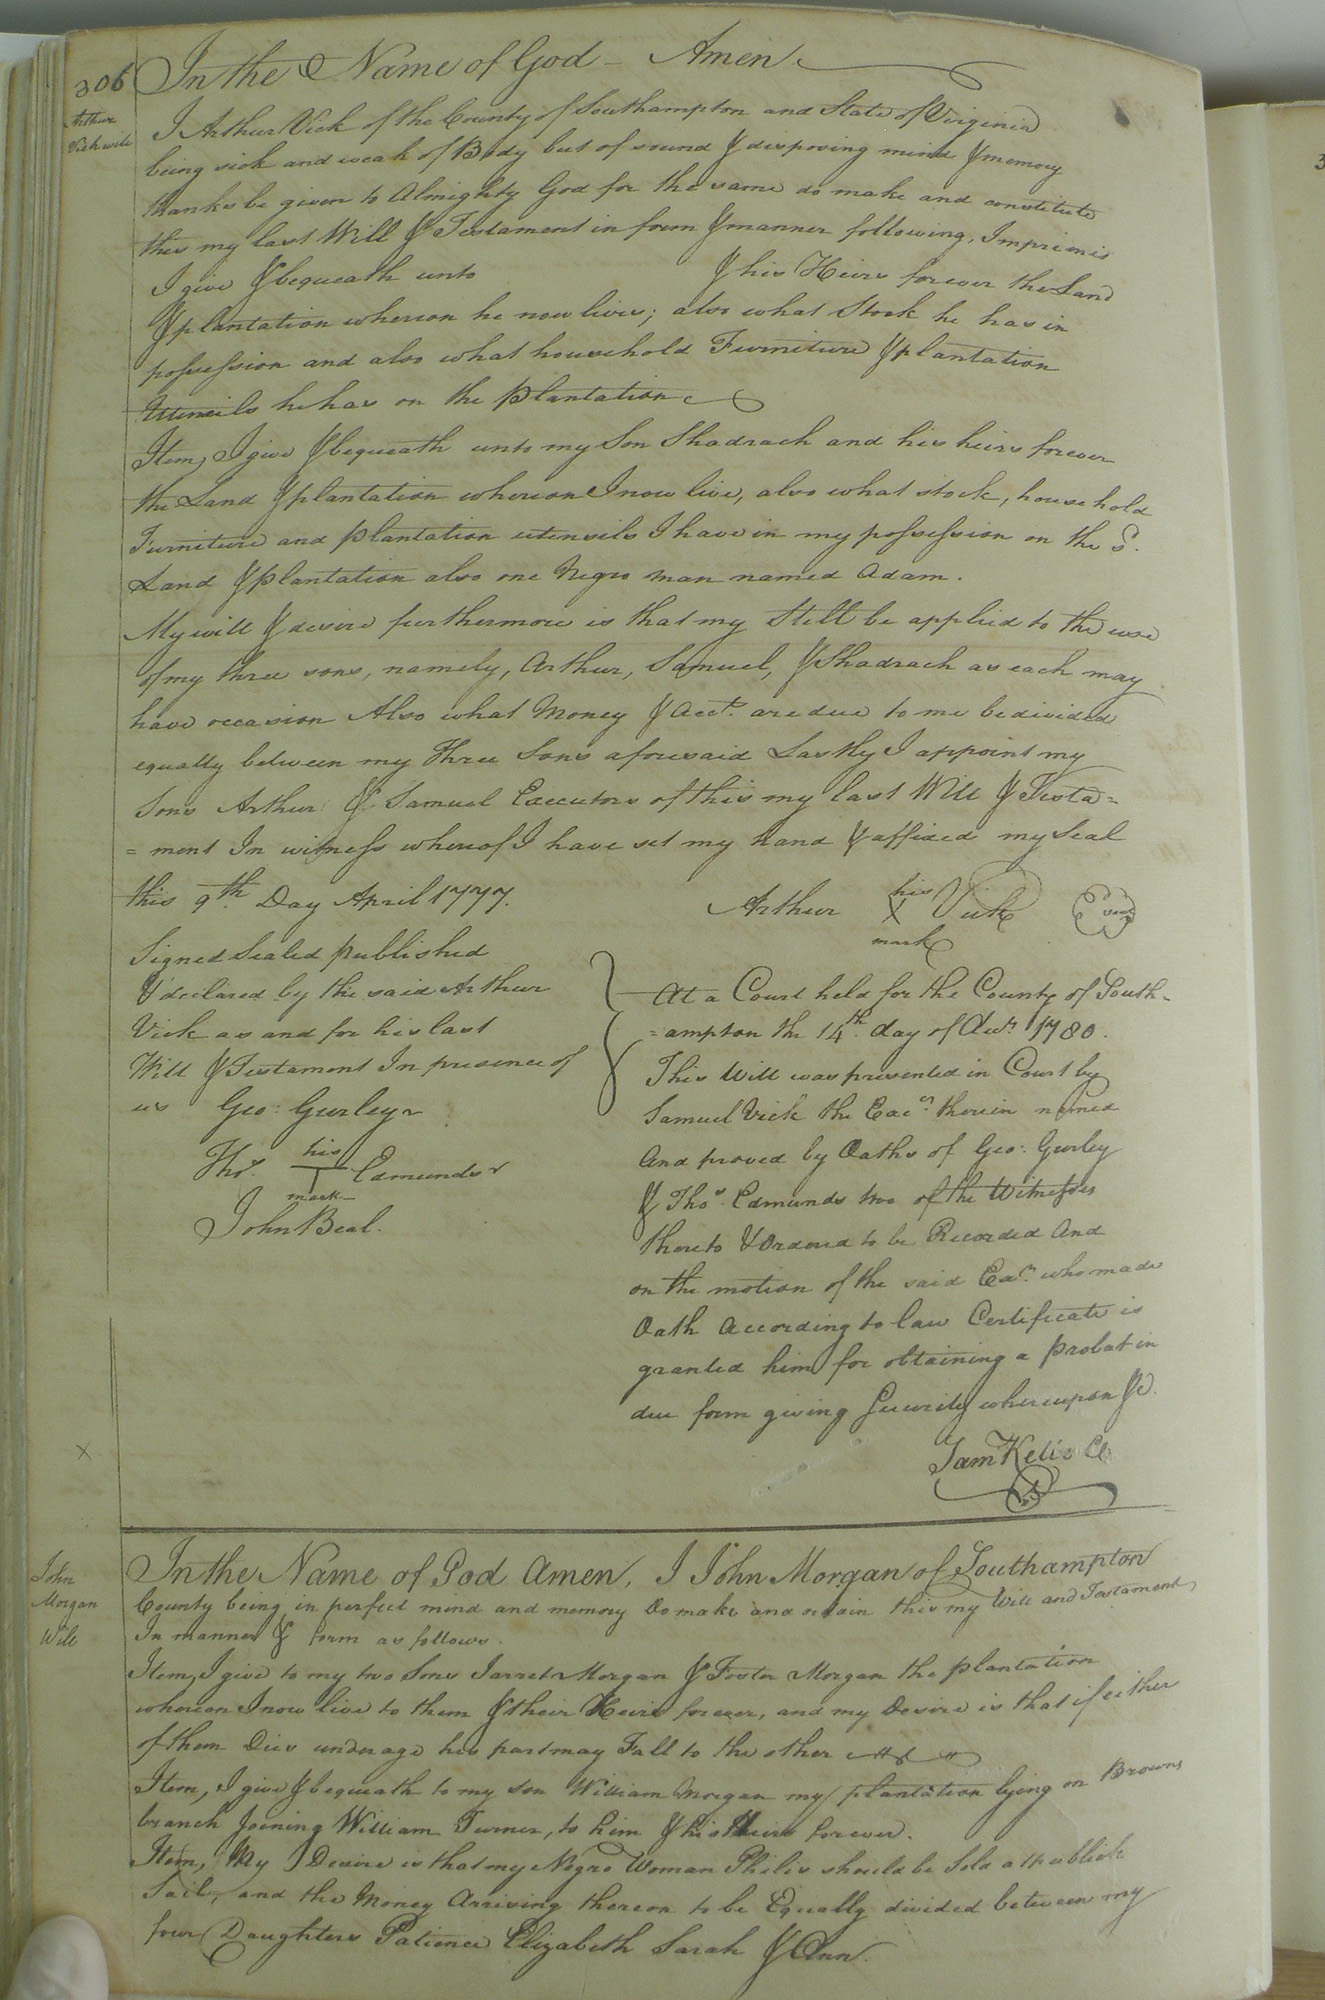 306
Arthur
Vick will
In the Name of God - Amen
I Arthur Vick of the County of Southampton and State of Virginia
being sick and weak of Body but of sound & disposing mind & memory
thanks be given to Almighty God for the same do make and constitute
this my last Will & Testament in form & manner following, Imprimis
I give & bequeath unto & his Heirs forever the Land
& plantation whereon he now lives; also what Stock he has in
possession and also what household Furniture & plantation
Utensils he has on the plantation
Item, I give & bequeath unto my Son Shadrach and his heirs forever
the Land & plantation whereon I now live, also what stock, household
Furniture and plantation utensils I have in my possession on the S.
Land & plantation also one Negro man named Adam.
My will & desire furthermore is that my Still be applied to the use
of my three sons, namely, Arthur, Samuel, & Shadrach as each may
have occasion Also what Money & Acct. are due to me be divided
equally between my three Sons aforesaid Lastly I appoint my
Sons Arthur & Samuel Executors of this my last Will & Testa=
=ment In witness whereof I have set my hand & affixed my Seal
this 9th. Day April 1777.
his
Arthur X Vick seal
mark
Signed Sealed published
& declared by the said Arthur
Vick as and for his last
Will & Testament In presence of
us Geo: Gurley
his
Thos. T Edmunds
mark
John Beal.
At a Court held for the County of South-
=ampton the 14th. day of 1780.
This Will was presented in Court by
Samuel Vick the Exec.r therein named
And proved by Oaths of Geo: Gurley
& Thos. Edmunds two of the Witnesses
thereto & Ordered to be Recorded And
on the motion of the said Exr. who made
Oath According to law Certificate is
granted him for obtaining a probat in
due form giving Security whereupon &c.
Sam Kello Cl
x
John
Morgan
Will
In the Name of God Amen, I John Morgan of Southampton
County being in perfect mind and memory Do make and ordain this my Will and Testament
In manner & form as follows.
Item, I give to my two Sons Jarret Morgan & Foster Morgan the plantation
whereon I now live to them & their Heirs forever, and my Desire is that if either
of them Dies underage his part may Fall to the other
Item, I give & bequeath to my son William Morgan my plantation lying on Browns
branch Joining William Turner, to him & his Heirs forever.
Item, My Desire is that my Negro Woman Philis should be Sold at publick
Sail, and the Money Arriving thereon to be Equally divided between my
four Daughters Patience Elizabeth Sarah & Ann.
3